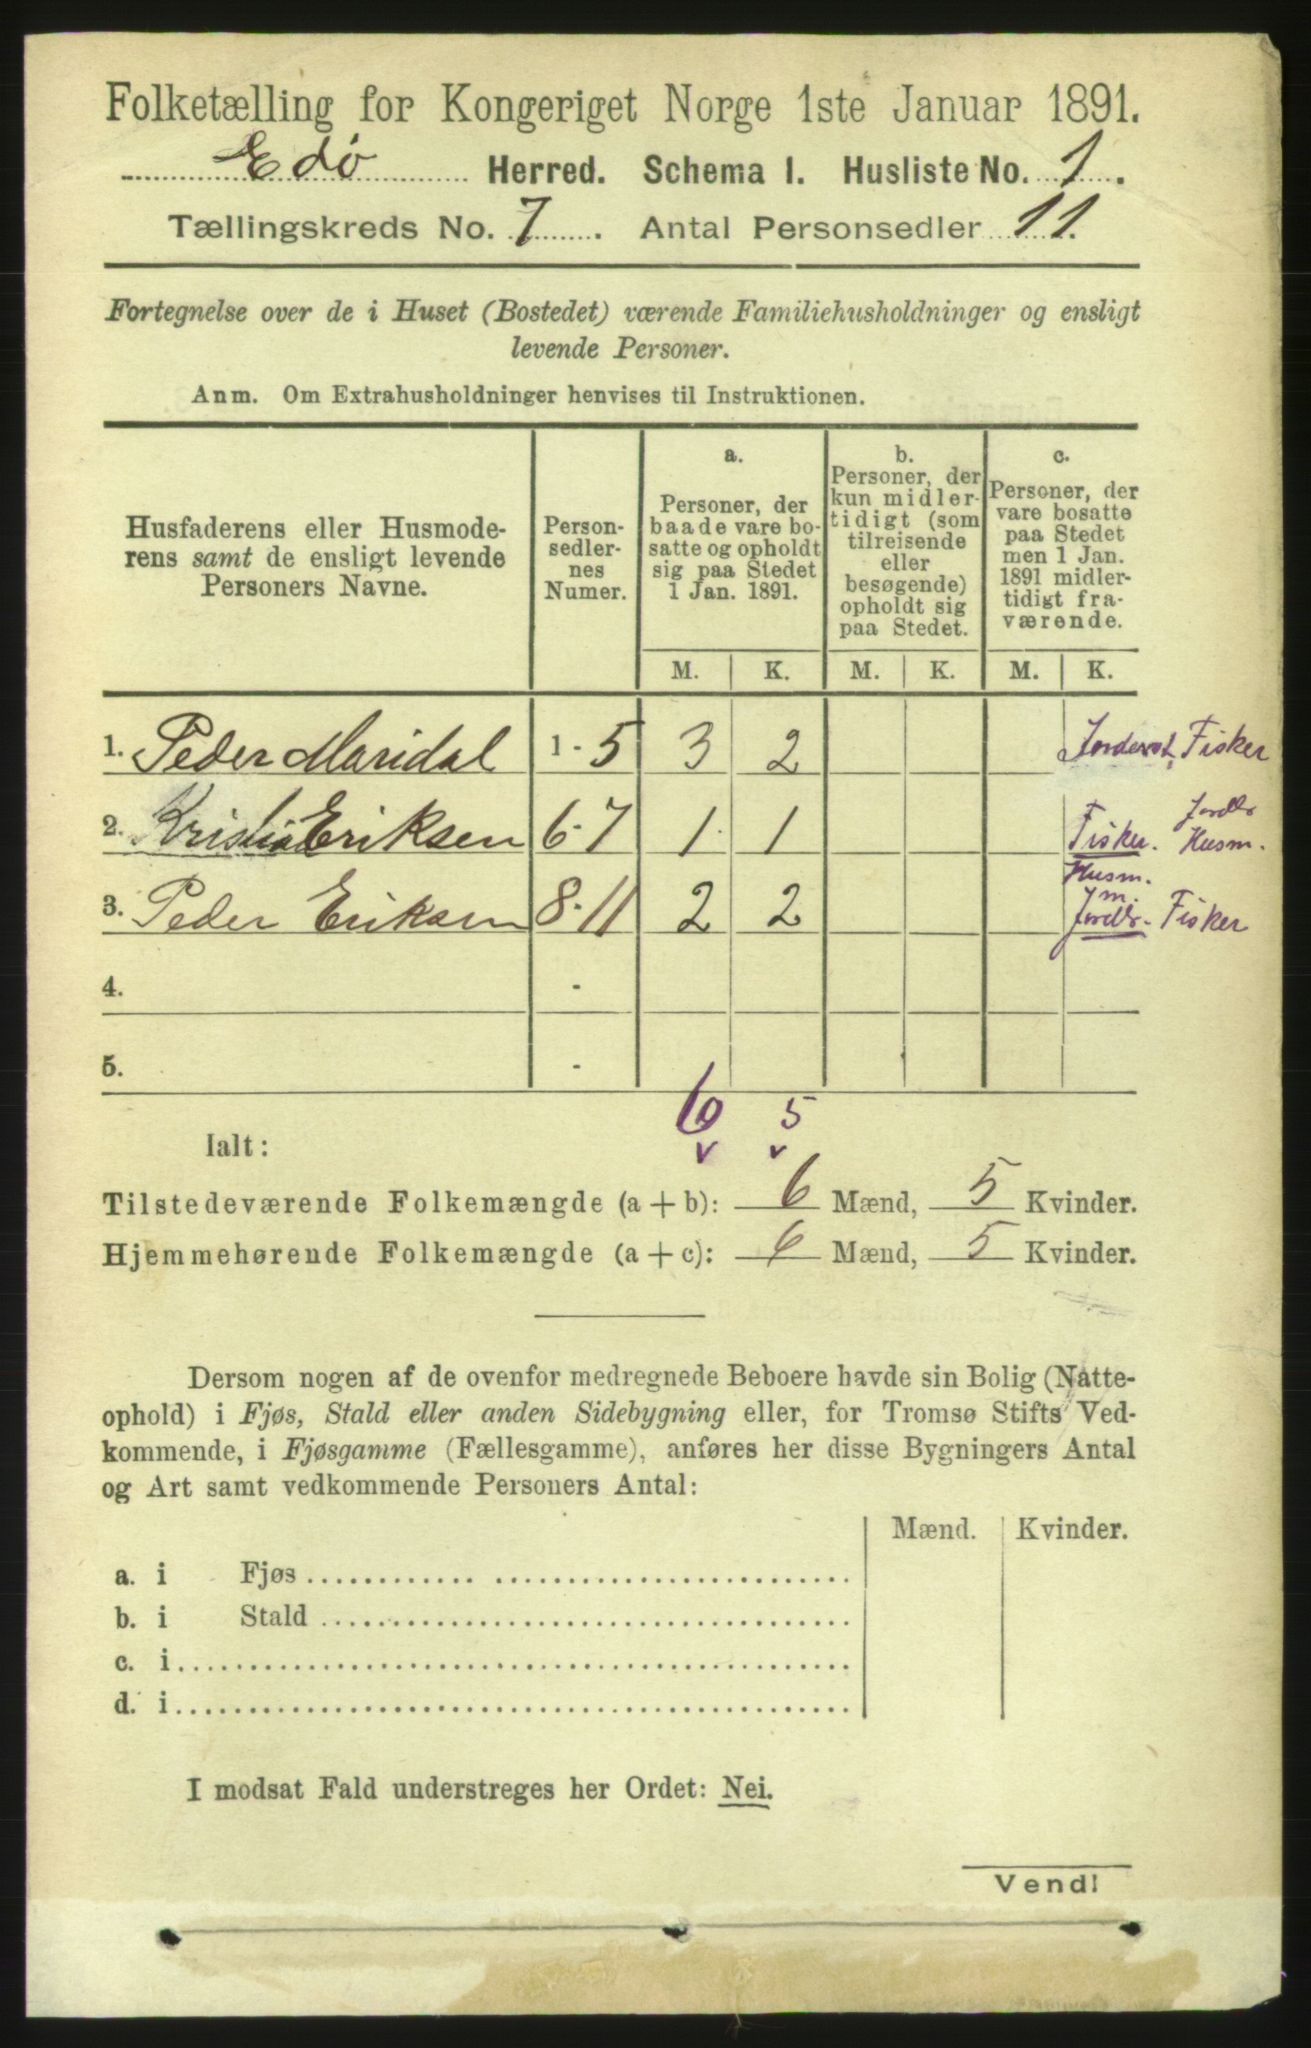 Folketælling for Kongeriget Norge 1ste Januar 1891.
Edø Herred. Schema 1. Husliste No. 1.
Tællingskreds No. 7. Antal Personsedler 11.
Fortegnelse over de i Huset (Bostedet) værende Familiehusholdninger og ensligt
levende Personer.
Anm. Om Extrahusholdninger henvises til Instruktionen.
Husfaderens eller Husmode-
rens samt de ensligt levende
Personers Navne.
Person-
sedler-
nes
Numer.
a.
Personer, der
baade vare bo-
satte og opholdt
sig paa Stedet
1 Jan. 1891.
b.
Personer, der
kun midler-
tidigt (som
tilreisende
eller
besøgende)
opholdt sig
paa Stedet.
c.
Personer, der
vare bosatte
paa Stedet
men 1 Jan.
1891 midler-
tidigt fra-
værende.
M. K. M. K. M. K.
1. Peder Maridal 1-5 3 2 Fisker
2. Eriksen 6-7 1 1 Fisker. Husm.
Husm.
3. Peder Eriksen 8-11 2 2 Fisker
4. -
5. -
6 5
Ialt:
Tilstedeværende Folkemængde (a + b): 6 Mænd, 5 Kvinder.
Hjemmehørende Folkemængde (a + c): 6 Mænd, 5 Kvinder.
Dersom nogen af de ovenfor medregnede Beboere havde sin Bolig (Natte-
ophold) i Fjøs, Stald eller anden Sidebygning eller, for Tromsø Stifts Ved-
kommende, i Fjøsgamme (Fællesgamme), anføres her disse Bygningers Antal
og Art samt vedkommende Personers Antal:
Mænd. Kvinder.
a. i Fjøs
b. i Stald
c. i
d. i
I modsat Fald understreges her Ordet: Nei.
Vend!